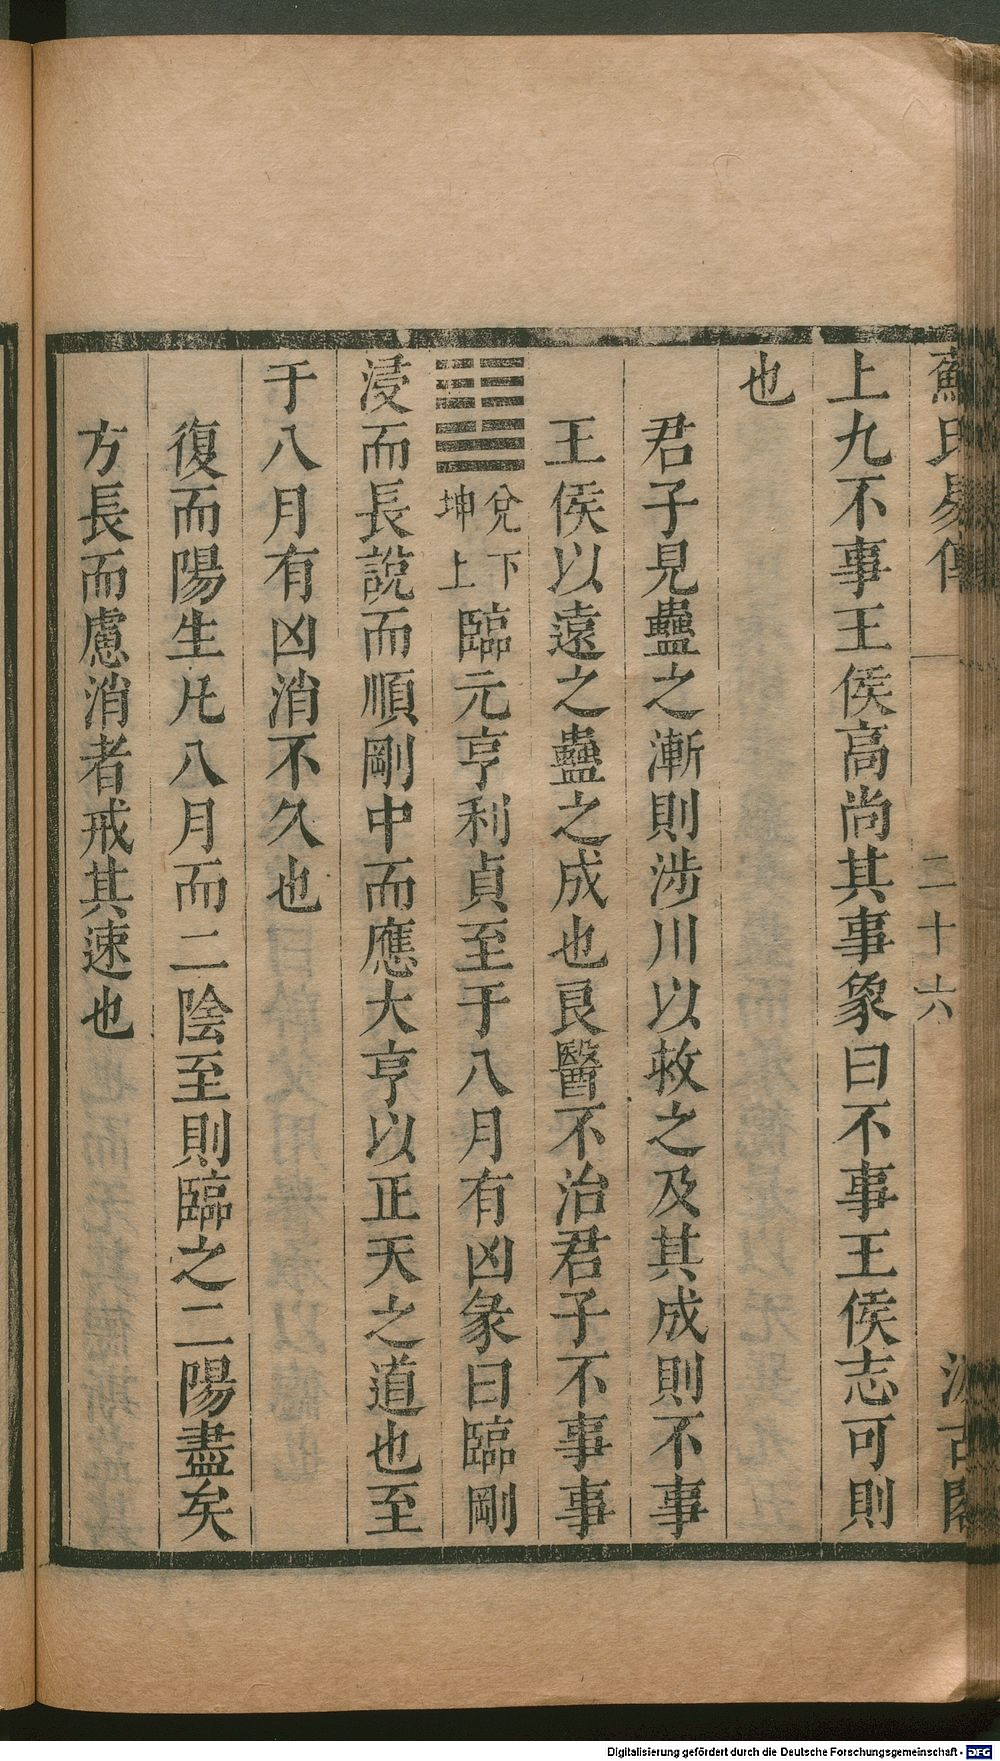 蘇氏易傳
二十六
汲古閣
上九不事王侯高尚其事象曰不事王侯志可則
也
君子見蠱之漸則涉川以救之及其成則不事
王侯以遠之蠱之成也良醫不治君子不事事
䷒兌下坤上臨元亨利貞至于八月有凶彖曰臨剛
浸而長說而順剛中而應大亨以正天之道也至
于八月有凶消不久也
復而陽生凡八月而二陰至則臨之二陽盡矣
方長而慮消者戒其速也
Digitalisierung gefördert durch die Deutsche Forschungsgemeinschaft - DFG